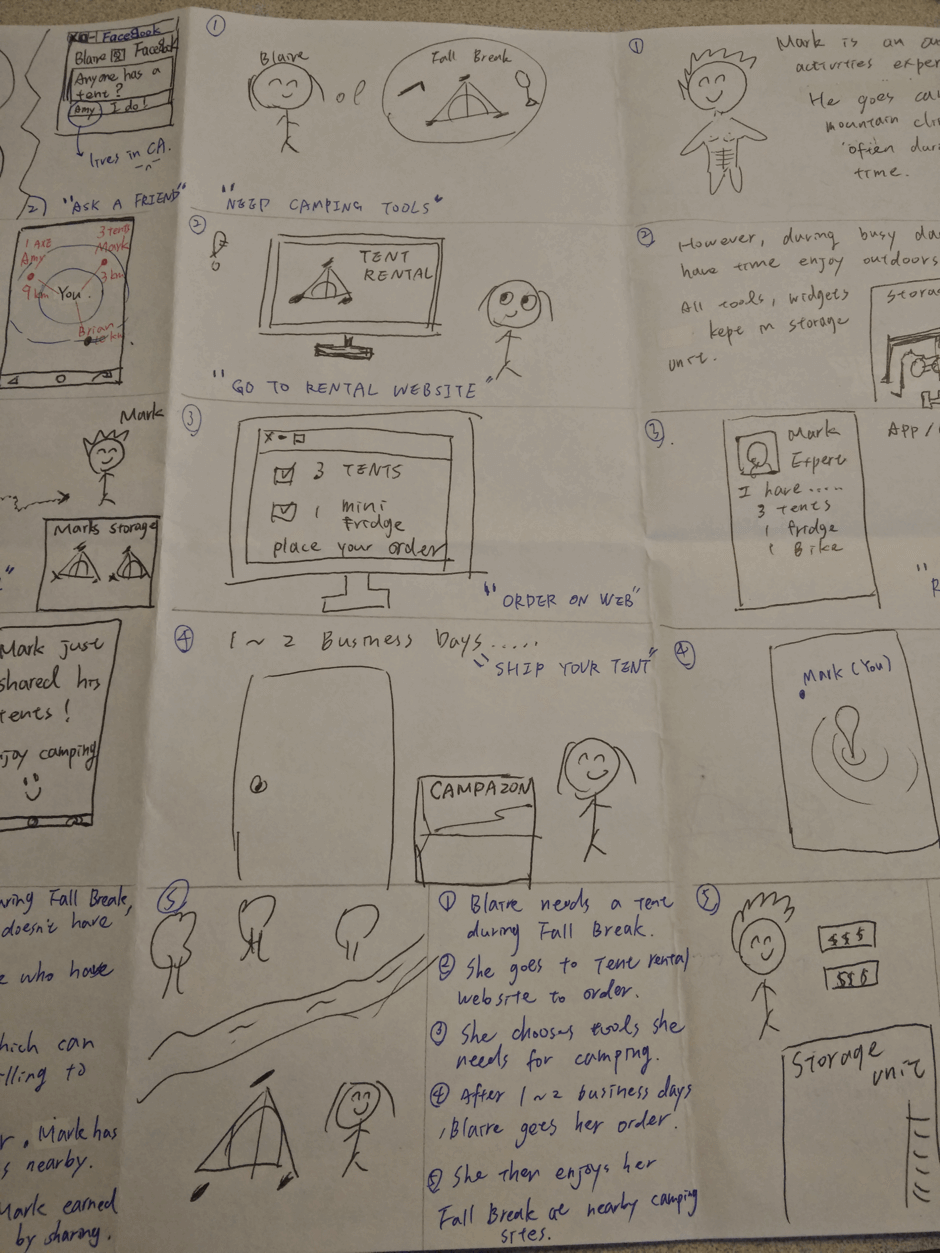 FaceBook
Blaire FaceBook
Anyone has a
tent?
Amy I do!
lives in CA.
2) "ASK A FRIEND"
1 AXE
Amy
9 km
3 Tents
Mark
3 km
You.
Brian
km
Mark
Marks storage
Mark just
shared his
tents!
joy camping
ring Fall Break,
doesn't have
who have
hich can
lling to
r. Mark has
s nearby.
Mark earned
by sharing.
1
Blaire
Fall Break
"NEED CAMPING TOOLS"
2
TENT
RENTAL
"GO TO RENTAL WEBSITE"
3
X - □
3 TENTS
1 mini
fridge
place your order
"ORDER ON WEB"
4
1 ~ 2 Business Days.....
"SHIP YOUR TENT"
CAMPAZON
5
① Blaire needs a Tent
during Fall Break.
② She goes to Tent rental
website to order.
③ She chooses tools she
needs for camping.
④ After 1 ~ 2 business days
, Blaire gets her order.
⑤ She then enjoys her
Fall Break at nearby camping
sites.
1
Mark is an ou
activities exper
He goes ca
mountain cli
often duri
time.
2
However, during busy da
have time enjoy outdoors
All tools, widgets
kept in storage
unit.
Storag
3.
Mark
Expert
I have.....
3 Tents
1 fridge
1 Bike
APP/
"R
4
Mark (You)
5
$$$
$$$
Storage
unit